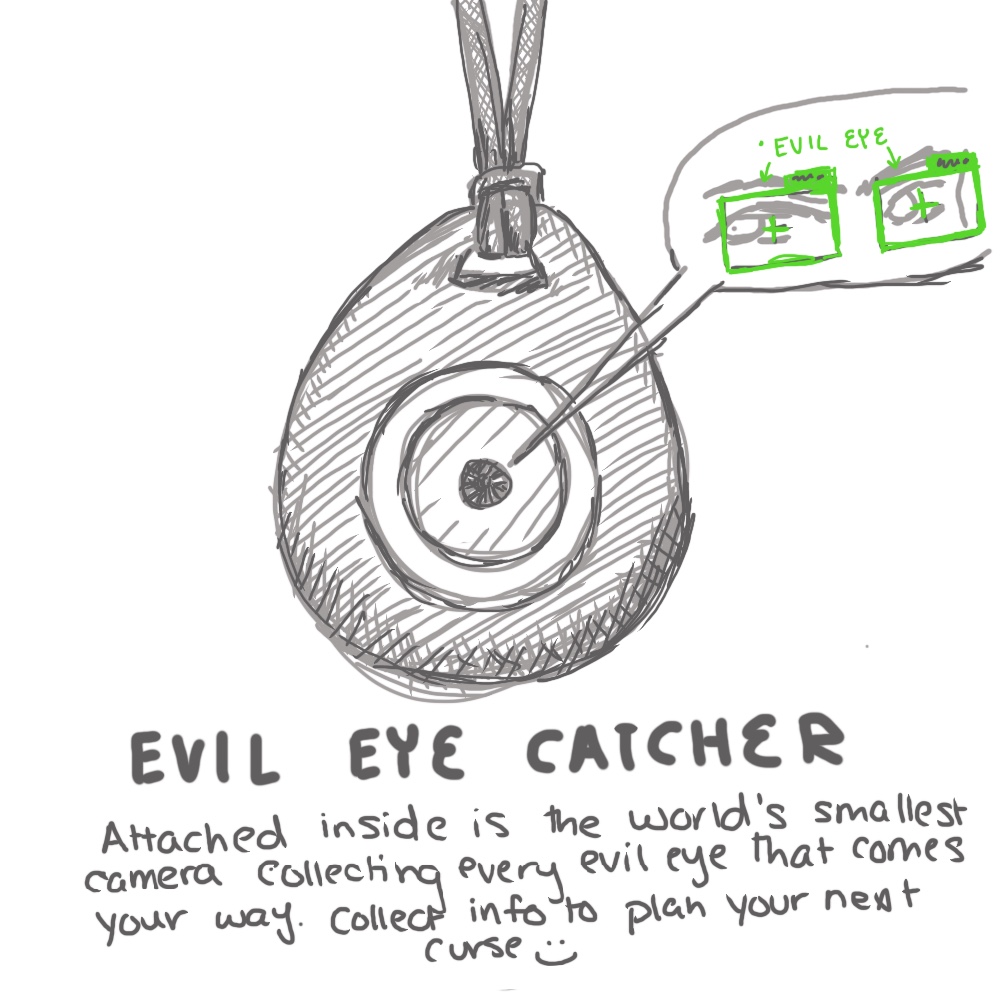 EVIL EYE
EVIL EYE CATCHER
Attached inside is the world's smallest
camera collecting every evil eye that comes
your way. Collect info to plan your next
curse